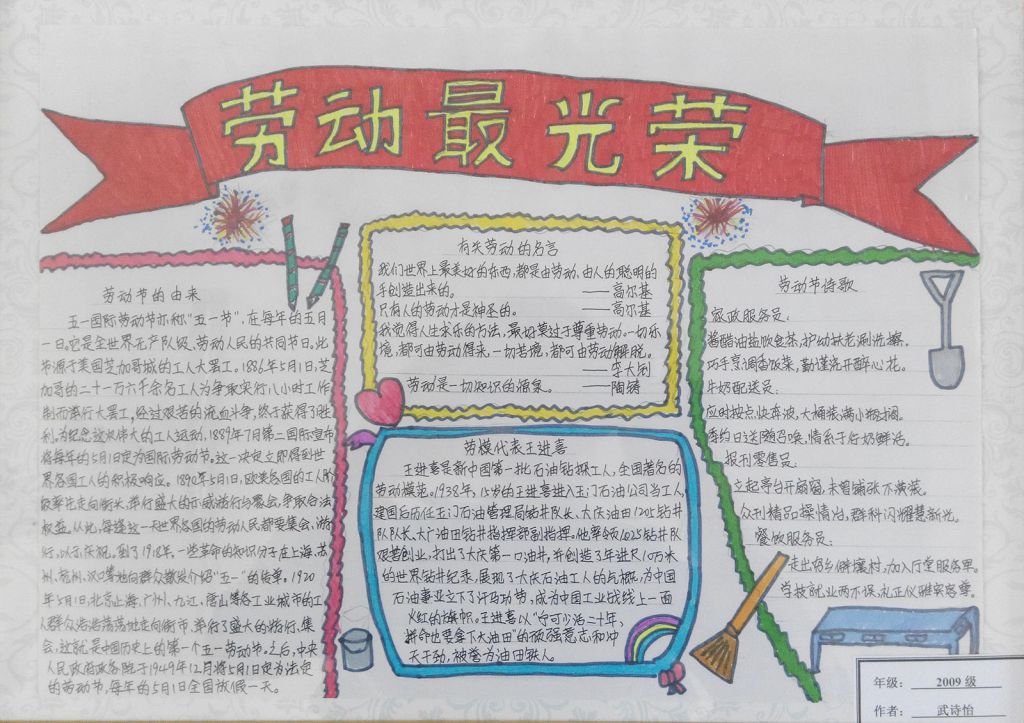 劳动最光荣
劳动节的由来
五一国际劳动节亦称"五一节",在每年的五月
一日。它是全世界无产队级、劳动人民的共同节日。此
节源于美国芝加哥城的工人大罢工。1886年5月1日,芝
加哥的二十一万六千余名工人为争取实行八小时工作
制而举行大罢工,经过艰苦的流血斗争,终于获得了胜
利。为纪念这次伟大的工人运动,1889年7月第二国际宣布
将每年的5月1日定为国际劳动节。这一决定立即得到世
界各国工人的积极响应。1890年5月1日,欧美各国的工人阶
级率先走向街头,举行盛大的示威游行与集会,争取合法
权益。从此,每逢这一天世界各国的劳动人民都要集会、游
行,以示庆祝。到了1918年,一些革命的知识分子在上海、苏
州、杭州、汉口等地向群众散发介绍"五一"的传单。1920
年5月1日,北京、上海、广州、九江、唐山等各工业城市的工
人群众浩浩荡荡地走向街市、举行了盛大的游行、集
会,这就是中国历史上的第一个五一劳动节。之后,中央
人民政府政务院于1949年12月将5月1日定为法定
的劳动节,每年的5月1日全国放假一天。
有关劳动的名言
我们世界上最美好的东西,都是由劳动、由人的聪明的
手创造出来的。 ——高尔基
只有人的劳动才是神圣的。 ——高尔基
我觉得人生求乐的方法,最好莫过于尊重劳动。一切乐
境,都可由劳动得来,一切苦境,都可由劳动解脱。
——李大钊
劳动是一切知识的源泉。 ——陶铸
劳模代表王进喜
王进喜是新中国第一批石油钻探工人,全国著名的
劳动模范。1938年,15岁的王进喜进入玉门石油公司当工人,
建国后历任玉门石油管理局钻井队长、大庆油田1205钻井
队队长、大庆油田钻井指挥部副指挥。他率领1205钻井队
艰苦创业,打出了大庆第一口油井,并创造了年进尺10万米
的世界钻井纪录,展现了大庆石油工人的气概,为中国
石油事业立下了汗马功劳,成为中国工业战线上一面
火红的旗帜。王进喜以"宁可少活二十年,
拼命也要拿下大油田"的顽强意志和冲
天干劲,被誉为油田铁人。
劳动节诗歌
家政服务员:
酱醋油盐饮食茶,护幼扶老涮洗擦。
巧手烹调香饭菜,勤谨浇开醉心花。
牛奶配送员:
应时按点快奔波,大桶装满小瓶
每约日送随召唤,情系千后奶鲜活。
报刊零售员:
立起亭台开扇窗,未曾铺张不潢装。
众刊精品操情冶,群科闪耀慧新光。
餐饮服务员:
走出穷乡僻壤村,加入厅堂服务军。
学技就业两不误,礼正仪雅宾客尊。
年级: 2009 级
作者: 武诗怡